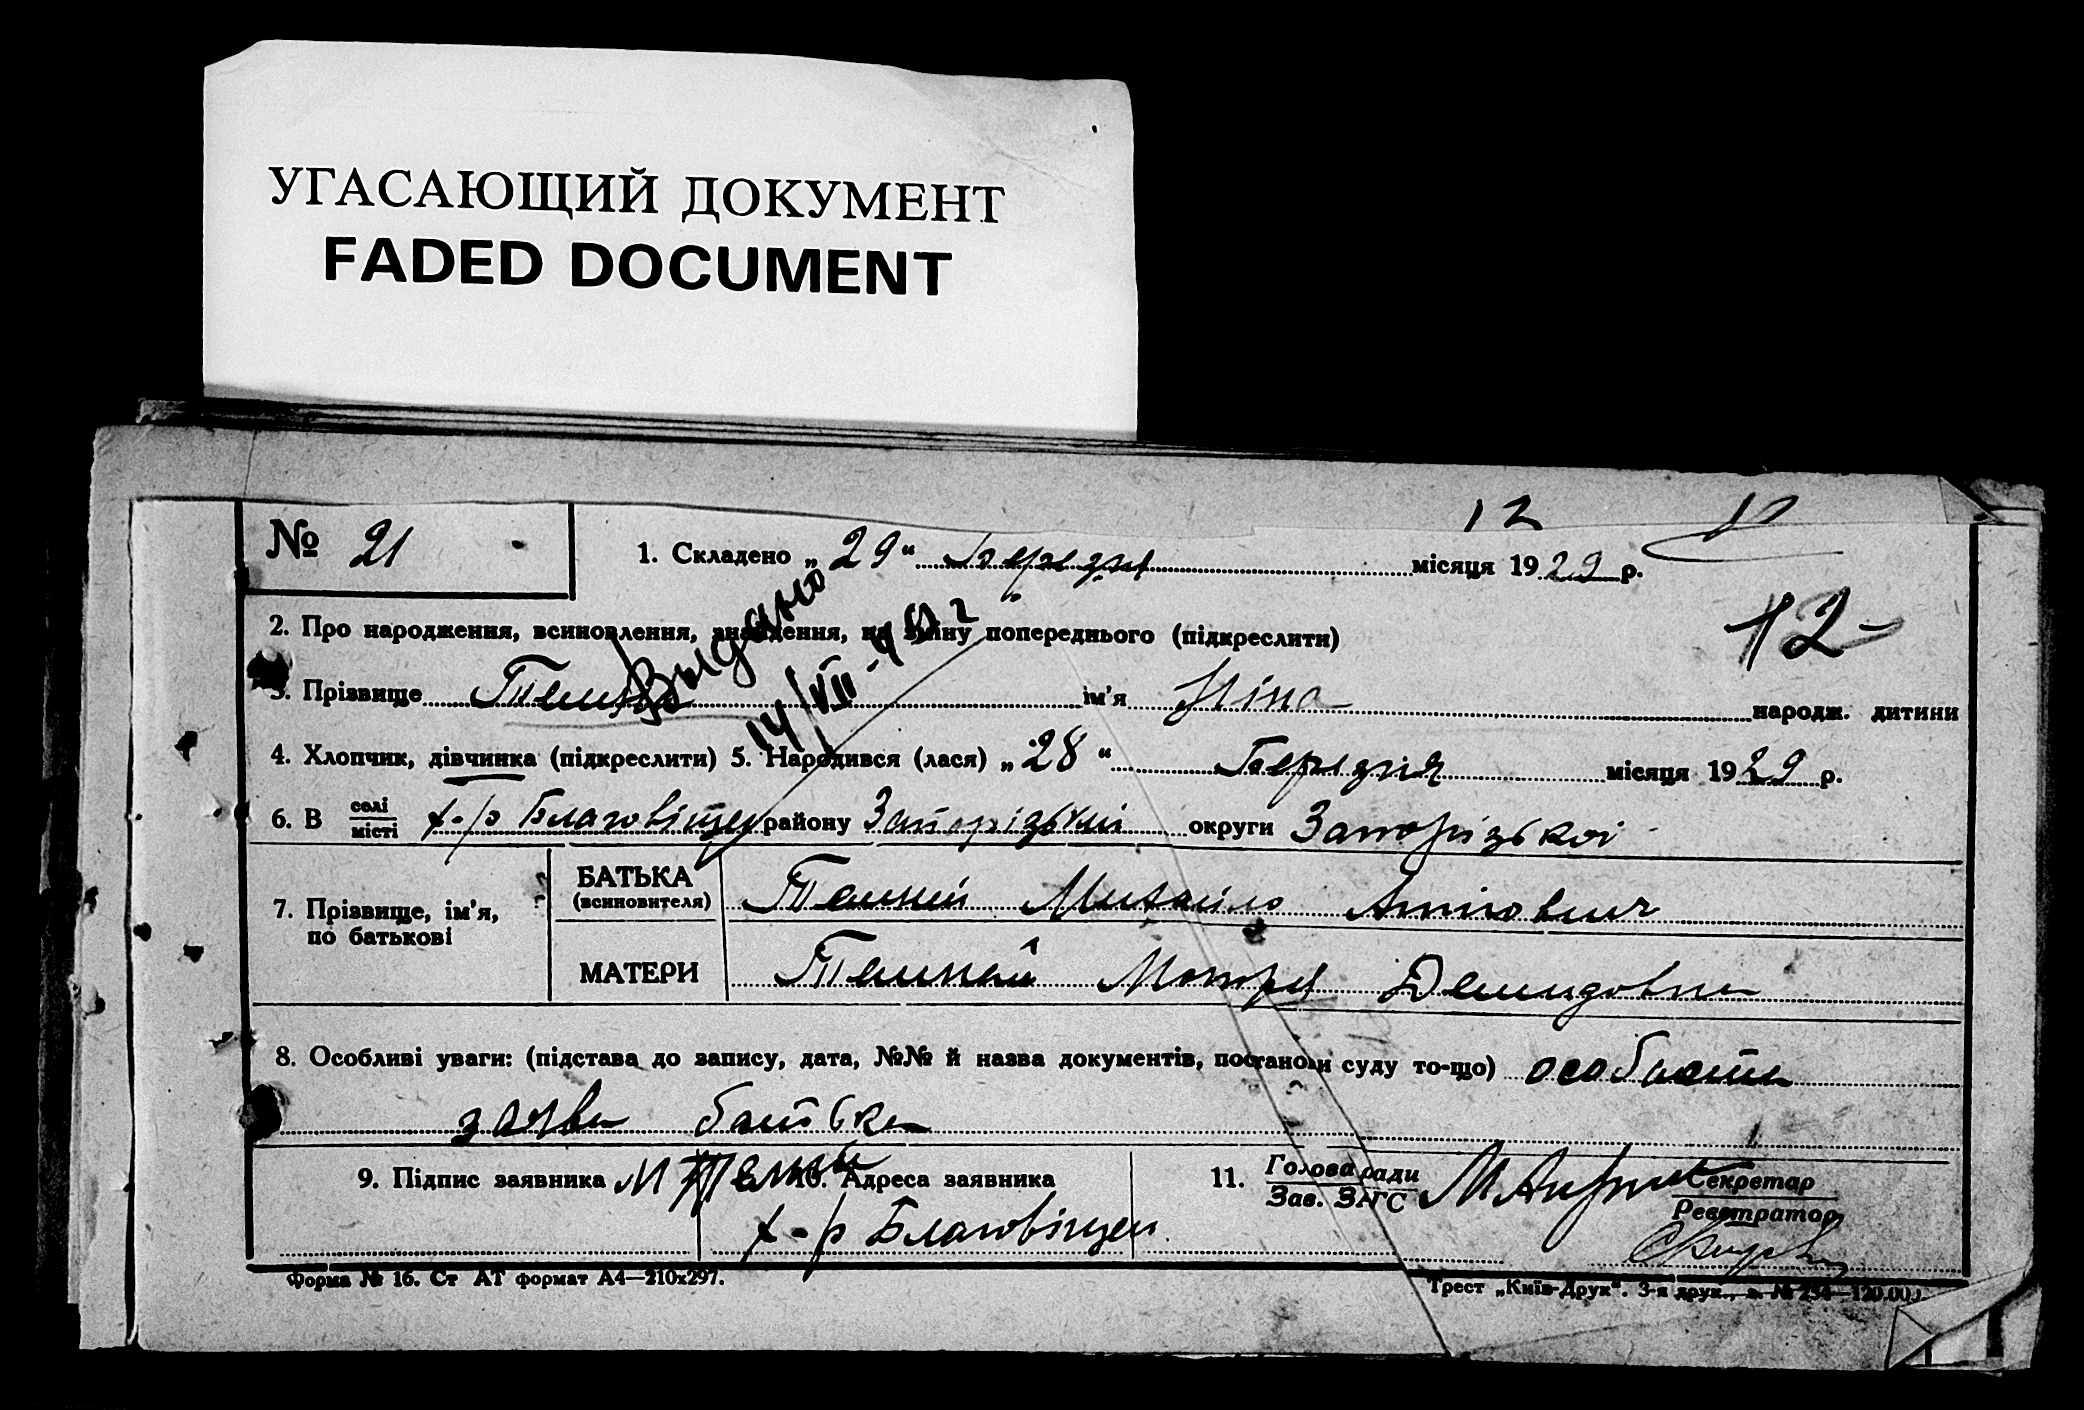 УГАСАЮЩИЙ ДОКУМЕНТ
FADED DOCUMENT
12
№ 21
1. Складено „29“ Березня місяця 1929 р.
12-
2. Про народження, всиновлення, знайдення, на зміну попереднього (підкреслити)
Выдано
14/VII-40 г
3. Прізвище ім'я Ніна народж. дитини
4. Хлопчик, дівчинка (підкреслити) 5. Народився (лася) „28“ Березня місяця 1929 р.
6. В селі місті х-р Благовіщен району Запорізький округи Запорізької
7. Прізвище, ім'я, по батькові
БАТЬКА (всиновителя) Михайло
МАТЕРИ Мотря Демидовна
8. Особливі уваги: (підстава до запису, дата, №№ й назва документів, постанови суду то-що) особиста
заява батька
9. Підпис заявника 10. Адреса заявника
х-р Благовіщен
11. Голова ради Зав. ЗАГС
Секретар Реєстратор
Форма № 16. Ст АТ формат А4—210х297.
Трест „Київ-Друк“. 3-я друк., з. № 254—120.000.